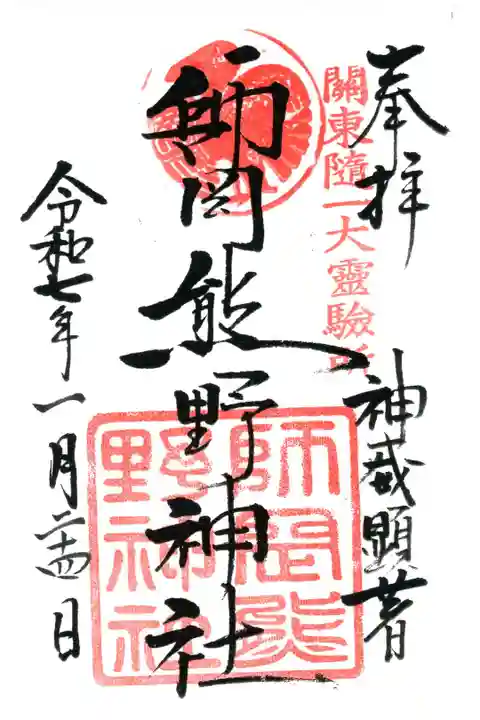 奉拝
關東隨一大靈驗所
神威顕著
師岡熊野神社
師岡熊野神社
令和七年一月二十四日